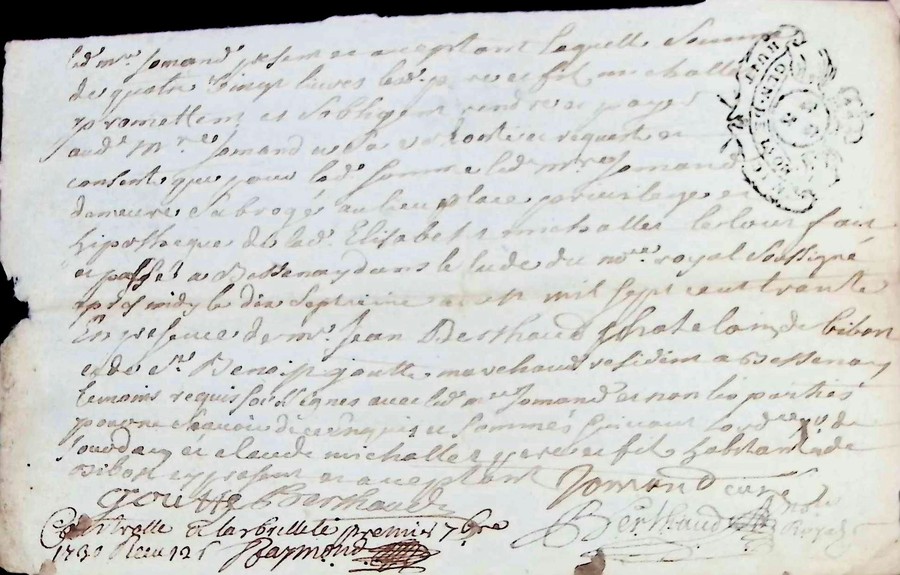 led. mre Jomand present et acceptant laquelle somme
de quatre vingt livres led. pere et fil michallet
promettent et sobligent rendre et payer
aud. mre Jomand a sa volonté et requeste et
consent que pour lad. somme led. mre Jomand
demeure subrogé au lieu place privilege et
hipotheque de lad. Elisabet michallet le tout fait
et passé a Bessenay dans le lude du nore royal soussigné
apres midy le dix septieme mil sept cent trante
En presence de mr. Jean Berthaud chatelain de bibost
et de Sr. Benoist goutte marchand resident a Bessenay
temoins requis soussignes avec led. mre Jomand et non les parties
pour ne scavoir de ce enquis et sommés suivant lord.
Jourdan et claude michallet pere et fil habitant de
Bibost cy present et acceptant
goutte Berthaud Jomand cure
Berthaud nore Royal
Controllé a larbrelle le premier 7bre
1730 Reçu 12 s Raymond